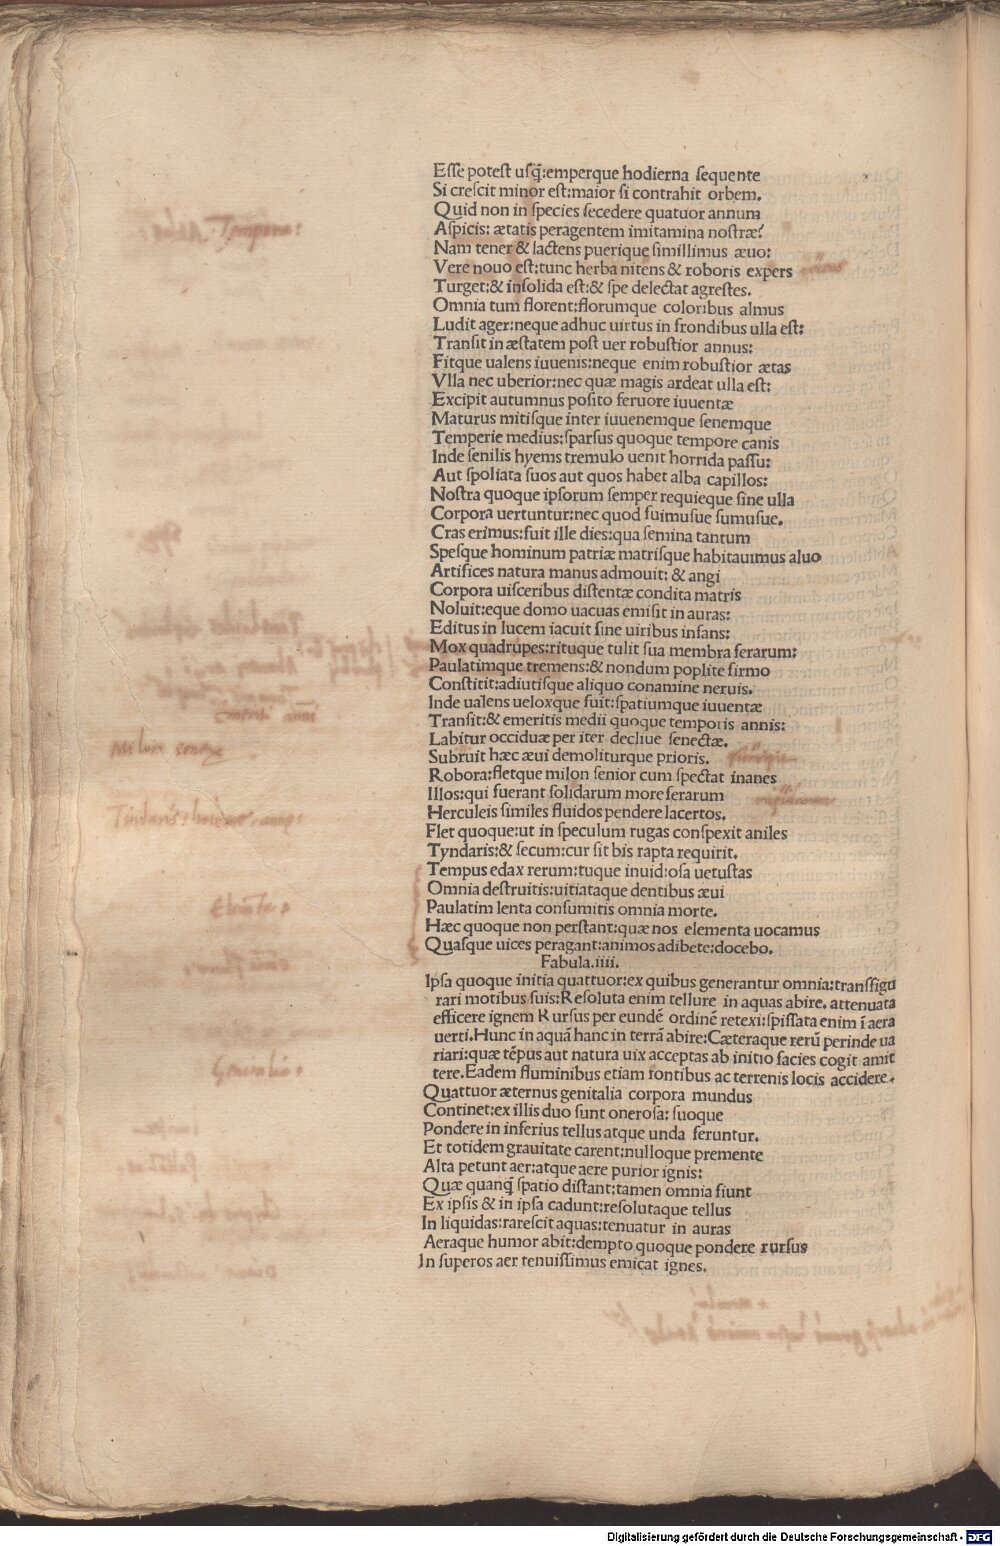 Esse potest usq̃:emperque hodierna sequente
Si crescit minor est:maior si contrahit orbem.
Quid non in species secedere quatuor annum
Tempora:
Aspicis: ætatis peragentem imitamina nostræ?
Nam tener & lactens puerique simillimus æuo:
Vere nouo est:tunc herba nitens & roboris expers
Turget:& insolida est:& spe delectat agrestes.
Omnia tum florent:florumque coloribus almus
Ludit ager:neque adhuc uirtus in frondibus ulla est:
Transit in æstatem post uer robustior annus:
Fitque ualens iuuenis:neque enim robustior ætas
Vlla nec uberior:nec quæ magis ardeat ulla est:
Excipit autumnus posito feruore iuuentæ
Maturus mitisque inter iuuenemque senemque
Temperie medius:sparsus quoque tempore canis
Inde senilis hyems tremulo uenit horrida passu:
Aut spoliata suos aut quos habet alba capillos:
Nostra quoque ipsorum semper requieque sine ulla
Corpora uertuntur:nec quod fuimusue sumusue.
Cras erimus:fuit ille dies:qua semina tantum
Spesque hominum patriæ matrisque habitauimus aluo
Artifices natura manus admouit: & angi
Corpora uisceribus distentæ condita matris
Noluit:eque domo uacuas emisit in auras:
Editus in lucem iacuit sine uiribus insans:
Mox quadrupes:rituque tulit sua membra ferarum:
Paulatimque tremens:& nondum poplite firmo
Constitit:adiutisque aliquo conamine neruis.
Inde ualens ueloxque fuit:spatiumque iuuentæ
Emeriti anni
Transit:& emeritis medii quoque temporis annis:
Labitur occiduæ per iter decliue senectæ.
Milon
Subruit hæc æui demoliturque prioris.
Robora:fletque milon senior cum spectat inanes
Illos:qui fuerant solidarum more ferarum
Herculeis similes fluidos pendere lacertos.
Flet quoque:ut in speculum rugas conspexit aniles
Tyndaris:& secum:cur sit bis rapta requirit.
Tempus edax rerum:tuque inuid:osa uetustas
Omnia destruitis:uitiataque dentibus æui
Paulatim lenta consumitis omnia morte.
Hæc quoque non perstant:quæ nos elementa uocamus
Quasque uices peragant:animos adibete:docebo.
Fabula.iiii.
Ipsa quoque initia quattuor:ex quibus generantur omnia:transfigu
rari motibus suis:Resoluta enim tellure in aquas abire. attenuata
efficere ignem Rursus per eundē ordinē retexi:spissata enim ī aera
uerti.Hunc in aquā hanc in terrā abire:Cæteraque rerū perinde ua
riari:quæ tēpus aut natura uix acceptas ab initio facies cogit amit
tere.Eadem fluminibus etiam fontibus ac terrenis locis accidere.
Quattuor æternus genitalia corpora mundus
Continet:ex illis duo sunt onerosa: suoque
Pondere in inferius tellus atque unda feruntur.
Et totidem grauitate carent:nulloque premente
Alta petunt aer:atque aere purior ignis:
Quæ quanq̃ spatio distant:tamen omnia fiunt
Ex ipsis & in ipsa cadunt:resolutaque tellus
In liquidas:rarescit aquas:tenuatur in auras
Aeraque humor abit:dempto quoque pondere rursus
In superos aer tenuissimus emicat ignes.
Digitalisierung gefördert durch die Deutsche Forschungsgemeinschaft - DFG